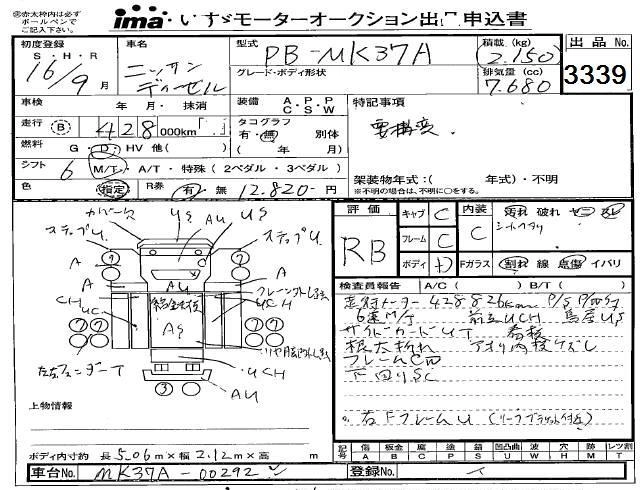 ◎赤太枠内は必ず
ボールペンで
ご記入下さい。
ima いすゞモーターオークション出品申込書
初度登録
S・H・R
16/9月
車名
ニッサン
ディーゼル
型式
PB-MK37A
グレード・ボディ形状
積載(kg)
(2.150)
排気量(cc)
7.680
出品No.
3339
車検 年・月・抹消
装備 A.P.P
C S W
特記事項
要構変.
走行 B 428,000km
タコグラフ
有・無 別体
( 年 月)
燃料 G・D・HV 他( )
シフト 6 M/T・A/T・特殊(2ペダル・3ペダル)
架装物年式:( 年式)・不明
※不明の場合は、不明に○をする。
色 指定 R券 有・無 12.820-円
評価
RB
キャブ C
フレーム C
ボディ D
内装 C
汚れ 破れ
Fガラス 割れ 線 点傷 イバリ
カバーS
US
AU
US
ステップU
ステップU
A
A
A
A
AU
CH
UC
AS
UCH
UCH
左右フェンダーT
AU
7
7
7 7
7 7
3
検査員報告 A/C( ) B/T( )
走行メーター428826km P/S P/W
6速M/T 前立UCH 鳥居US
サイドガードUT 看板
根太折れ アオリ内板ケズレ
フレームC凹
下回りSC
○右Fフレームu(リーフブラケット付近)
上物情報
ボディ内寸約 長 5.06m×幅 2.12m×高 m
記号 傷 板金 腐 塗 錆 凹凸曲 波 穴 跡 レツ割
A B C P S U W H M T
車台No. MK37A-00292
登録No.